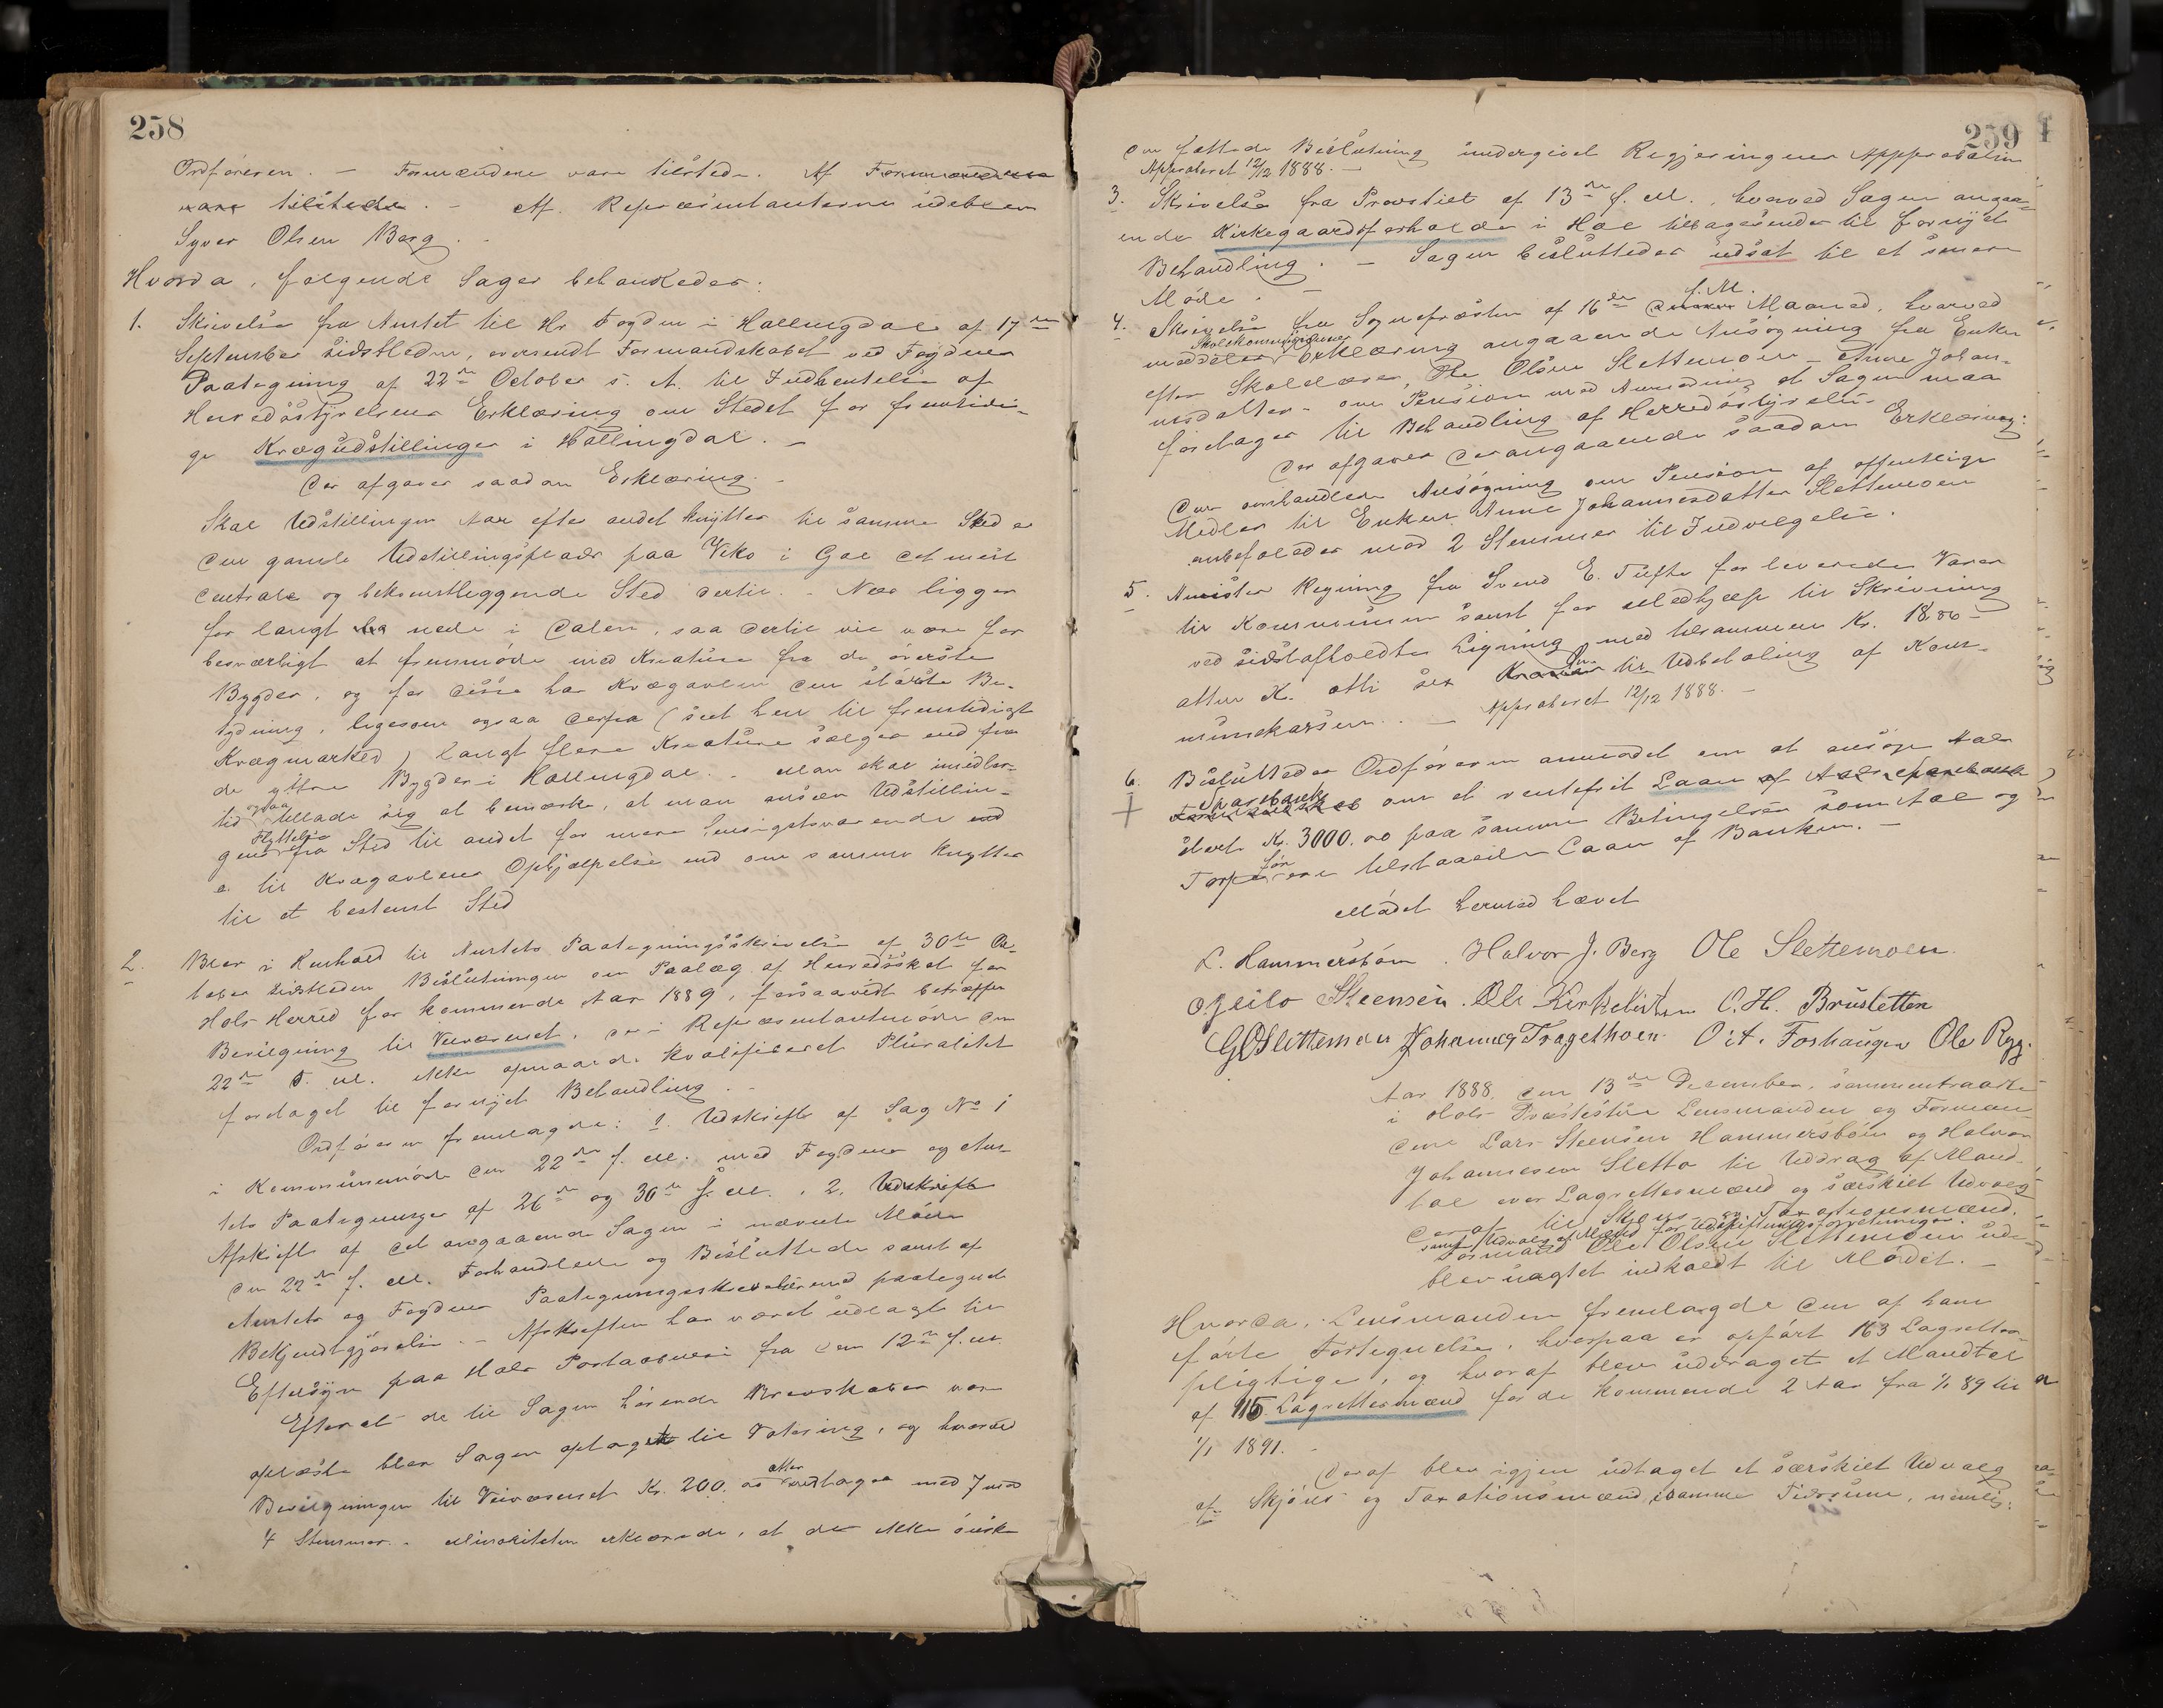 258
Ordføreren. – Formændene vare tilstede. Af Formændene
vare tilstede. – Af Repræsentanterne udeblev
Syver Olsen Berg.
Hvorda, følgende Sager behandledes:
1. Skrivelse fra Amtet til Hr. Fogden i Hallingdal af 17de
September sidstleden, oversendt Formandskabet ved Fogdens
Paategning af 22de October s. A. til Indhentelse af
Herredsstyrelsens Erklæring om Stedet for fremtidi-
ge Kvægudstillinger i Hallingdal. –
Der afgaves saadan Erklæring. –
Skal Udstillingen Aar efter andet knyttes til samme Sted er
den gamle Udstillingsplads paa Viko i Gol det mest
centrale og bekvemtliggende Sted dertil. – Næs ligger
for langt nede i Dalen, saa dertil vil være for
besværligt at fremmøde med Kreature fra de øverste
Bygder, og for disse har Kvægavlen den største Be-
tydning, ligesom ogsaa derfra (seet hen til fremtidigt
Kvægmarked) langt flere Kreature sælges end fra
de ytre Bygder i Hallingdal. – Man skal imidler-
ogsaa
tid tillade sig at bemærke, at man anser Udstillin-
Flyttelse
gens fra Sted til andet for mere hensigtsvarende end
a til Kvægavlens Ophjælpelse end om samme knyttes
til et bestemt Sted
2. Blev i Henhold til Amtets Paategningsskrivelse af 30te Oc-
tober sidstleden Beslutningen om Paalæg af Herredsskat for
Hols Herred for kommende Aar 1889, forsaavidt betræffer
Bevilgning til Veivæsenet, der i Repræsentantmøde den
22de f. M. ikke opnaaede kvalificeret Pluralitet
foretaget til fornyet Behandling. –
Ordføreren fremlagde: 1. Udskrift af Sag No 1
i Kommunemøde den 22de f. M. med Fogdens og Am-
tets Paategninger af 26de og 30te f. M., 2, Udskrift
Afskrift af det angaaende Sagen i nævnte Møde
den 22de f. M. Forhandlede og Besluttede samt af
Amtets og Fogdens Paategningsskrivelse med paategnet
Bekjendtgjørelse. – Afskriften har været udlagt til
Eftersyn paa Hols Postaabneri fra den 12te f. M.
Efterat de til Sagen hørende Brevskaber var
oplæste blev Sagen optaget til Votering, og hvorved
atter
Bevilgningen til Veivæsenet Kr. 200.00 vedtages med 7 mod
4 Stemmer. – Minoriteten erklærede, at de ikke ønske
259
den fattede Beslutning undergivet Regjeringens Approbation
Approberet 12/12 1888. –
3. Skrivelse fra Provstiet af 13de f. M., hvorved Sagen angaa-
ende Kirkegaardsforholde i Hol tilbagesendes til fornyet
Behandling. – Sagen besluttedes udsat til et senere
Møde. –
f. M.
4. Skrivelse fra Sognepræsten af 16de Maaned, hvorved
Skolekommissionens
meddeles Erklæring angaaende Ansøgning fra Enken
efter Skolelærer Ole Olsen Slettemoen – Anne Johan-
nesdatter – om Pension med Anmodning at Sagen maa
foretages til Behandling af Herredsstyrelsen
Der afgaves derangaaende saadan Erklæring:
Den omhandlede Ansøgning om Pension af offentlige
Midler til Enken Anne Johannesdatter Slettemoen
anbefaledes med 2 Stemmer til Indvilgelse.
5. Anvistes Regning fra Svend E. Tufte for leverede Varer
til Kommunen samt for Medhjælp til Skrivning
ved sidstafholdte Ligning med tilsammen Kr. 18.86 –
atten K. otti sex Øre til Udbetaling af Kom-
munekassen. – Approberet 12/12 1888. –
6. Besluttedes Ordføreren anmodet om at ansøge Aals
Sparebank
Formandskab om et rentefrit Laan af Aals Sparebank
stort Kr. 3000.00 paa samme Betingelser som Aal og
før
Torpe ere tilstaaede Laan af Banken. –
Mødet hermed hævet
L. Hammersbøen. Halvor J. Berg Ole Slettemoen.
Ojeilo Steensen. Ole Kirkebøen O. H. Brusletten
G O Slettemoen Johannes Tragethoen. O. A. Foshaugen Ole Ryg.
Aar 1888, den 13de December, sammentraadte
i Hols Præstestue Lensmanden og Formæn-
dene Lars Steensen Hammersbøen og Halvor
Johannesen Sletto til Uddrag af Mand-
tal over Lagrettesmænd og særskilt Udvalg
deraf til Skjøns- og Taxationsmænd,
samt Udvalg af Mænd for Udskiftningsforretninger.
Formand Ole Olsen Slettemoen ude-
blev uagtet indkaldt til Mødet. –
Hvorda, Lensmanden fremlagde den af ham
førte Fortegnelse, hvorpaa er opført 163 Lagrettes-
pligtige, og hvoraf blev uddraget et Mandtal
af 115 Lagrettesmænd for de kommende 2 Aar fra 1/1 89 til
1/1 1891. –
Deraf blev igjen udtaget et særskilt Udvalg
af Skjøns og Taxationsmænd i samme Tidsrum, nemlig: